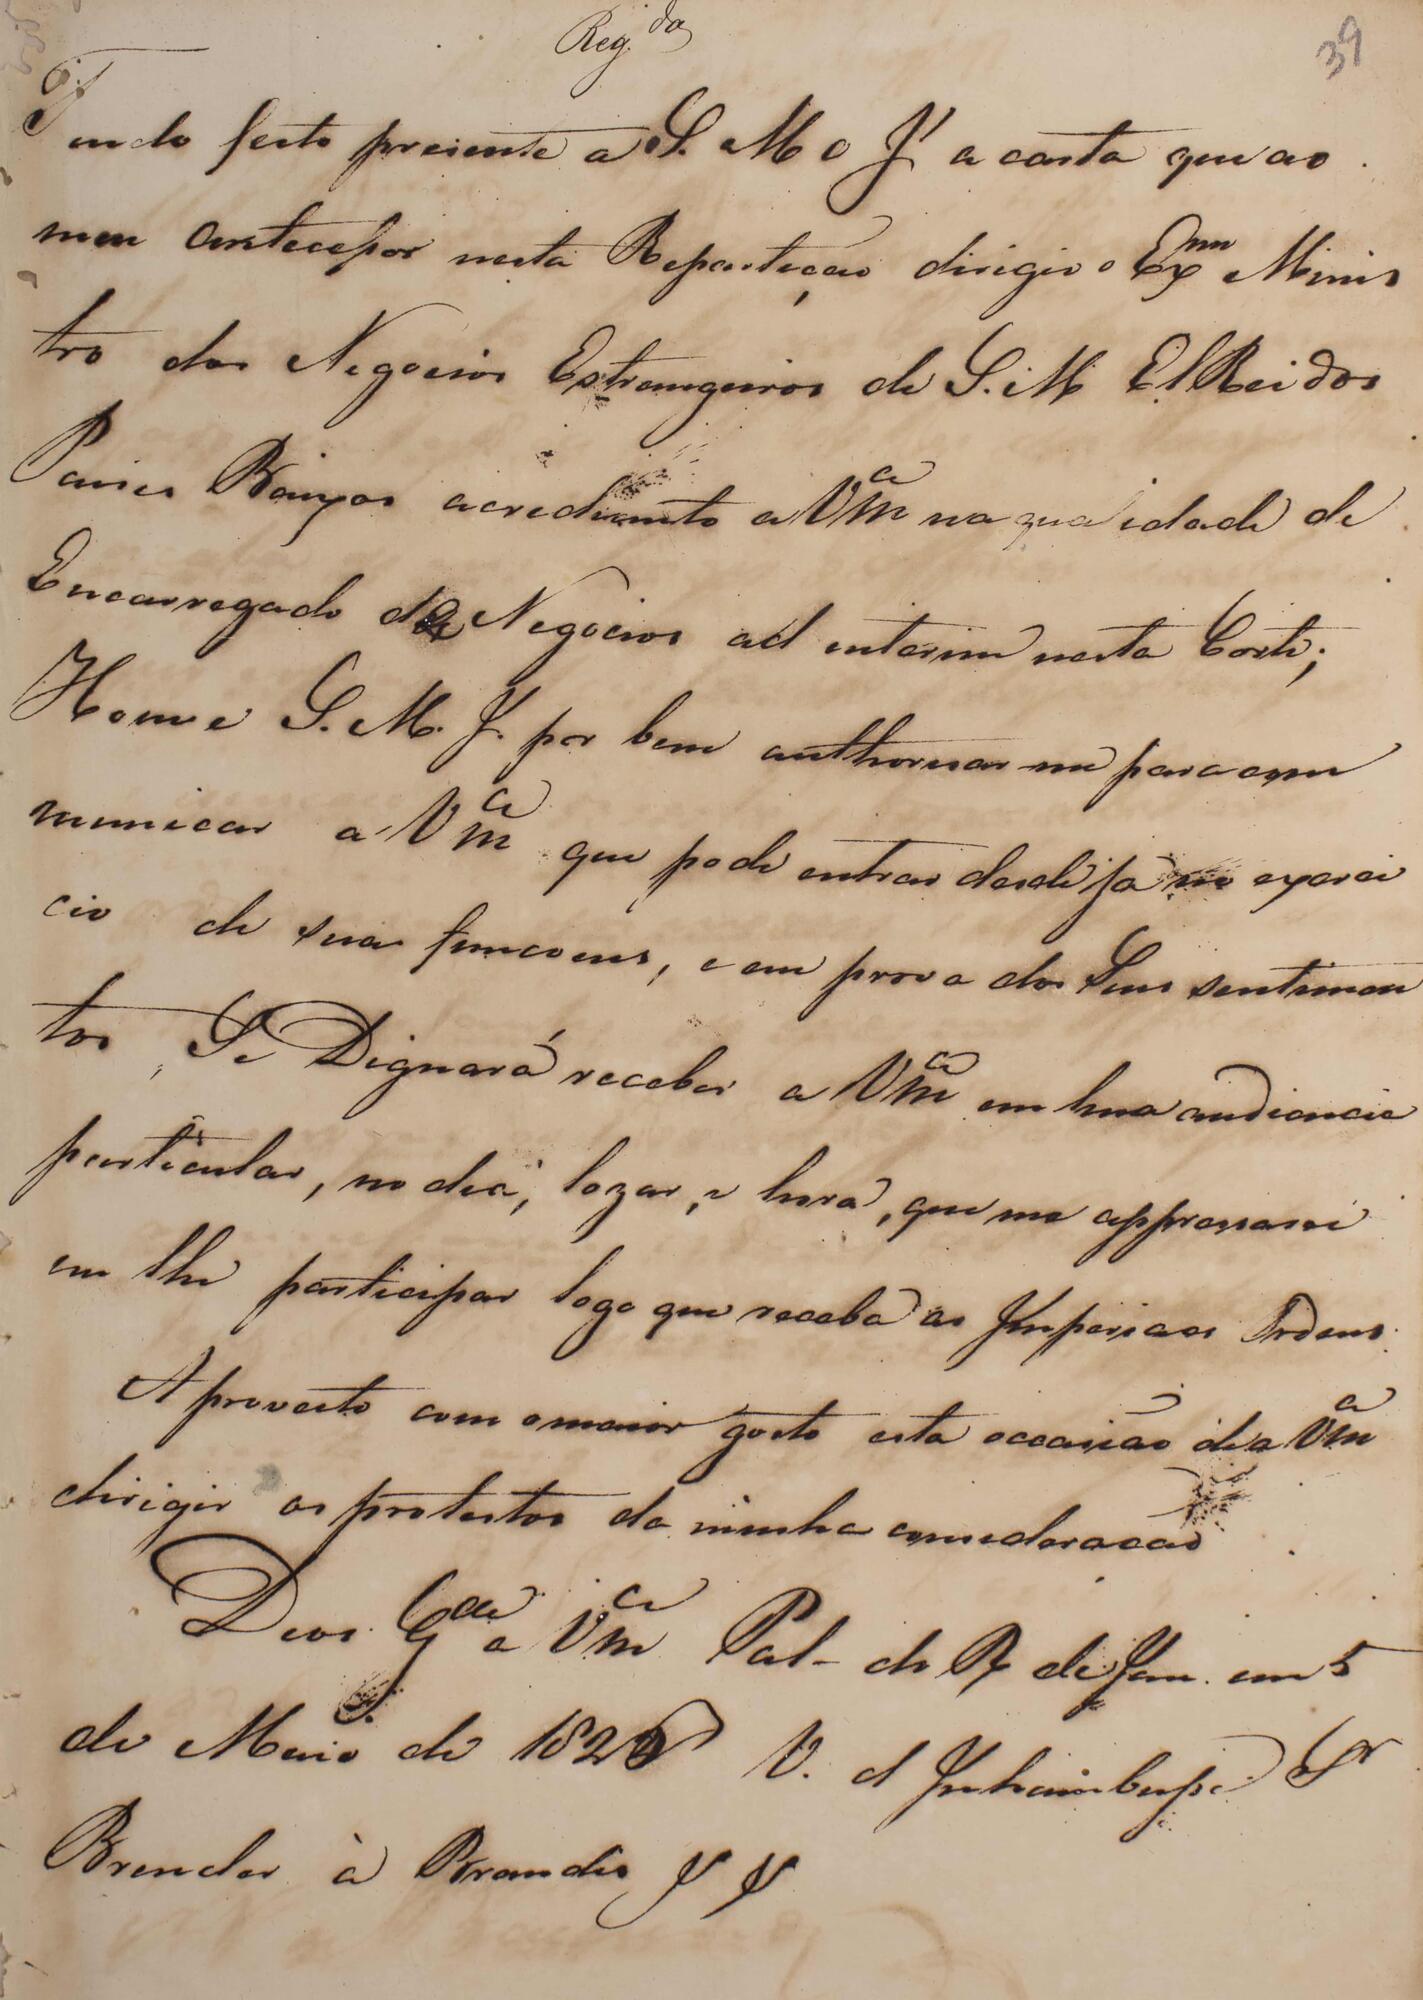 Reg.da
39
Tendo feito presente a S. M o J. a carta que ao
meu antecessor nesta Repartição dirigio o Exmo Minis
tro dos Negocios Estrangeiros de S. M El Rei dos
Paises Baixos acreditando a Vmce na qualidade de
Encarregado de Negocios ad interim nesta Corte;
Houve S. M. J. por bem authorisar me para com
municar a Vmce que pode entrar desde ja no exerci
cio de suas funcoens, e em prova dos Seus sentimen
tos, Se Dignará receber a Vmce em hua audiencia
particular, no dia, logar, e hora, que me appressarei
em lhe participar logo que receba as Imperiaes Ordens.
Aproveito com o maior gosto esta occasião de a Vmce
dirigir os protestos da minha consideracao
Deos Gde a Vmce Pal. do R de Jan. em 5
de Maio de 1826 V. d Inhambupe Sr
Brender à Brandis